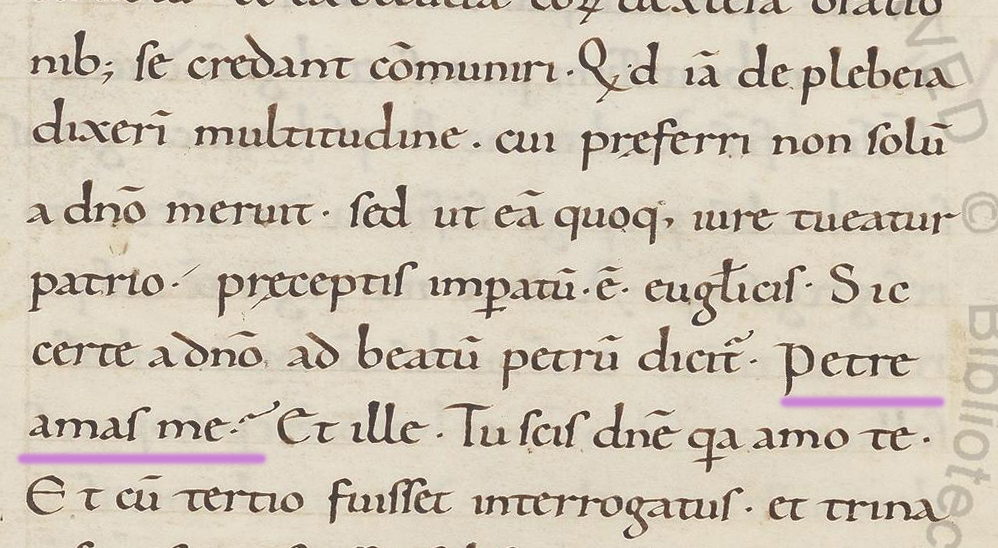 nib; se credant cōmuniri · Q,d iā de plebeia
dixerī multitudine · cui pręferri non solū
a dnō meruit · sed ut eā quoq, iure tueatur
patrio · pręceptis imꝑatū · ē · eugłicis · Sic
certe a dnō ad beatū petrū dicit᷒ · Petre
amas me · Et ille · Tu scis dnē qa amo te ·
Et cū tertio fuisset interrogatus · et trina
Bibliotec